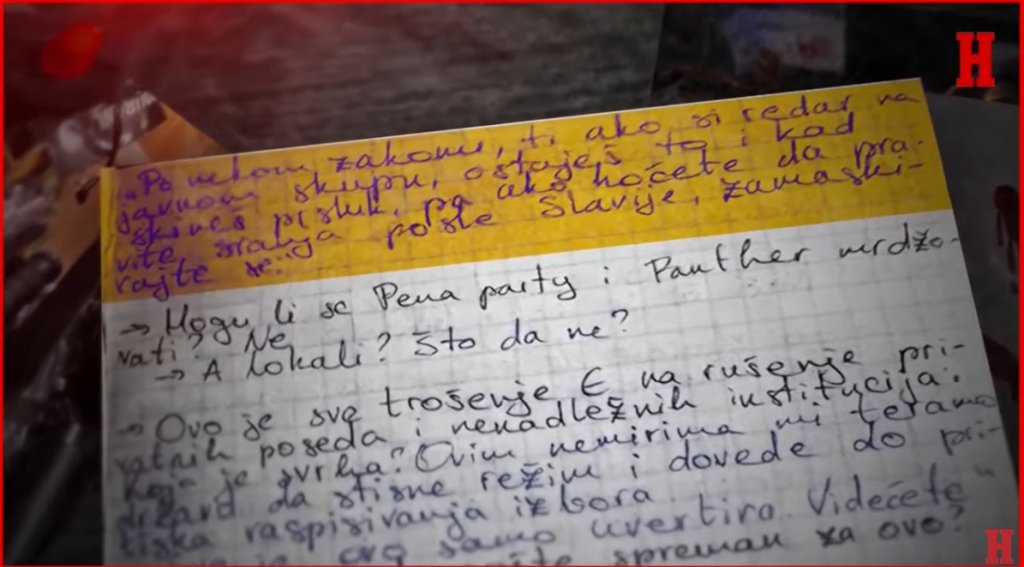 H
"Po nekom zakonu, ti ako si redar na
javnom skupu, ostaješ to i kad
skineš prsluk, pa ako hoćete da pra-
vite sranja posle Slavije, zamaski-
rajte se"
→ Mogu li se Pena party i Panther mrdžo-
vati? Ne
→ A lokali? Što da ne?
→ Ovo je sve trošenje € na rušenje pri-
vatnih poseda i nenadležnih institucija.
Koja je svrha? Ovim nemirima mi teramo
državu da stisne režim i dovede do pri-
tiska raspisivanja izbora
ovo samo uvertira. Videćete"
spreman za ovo?
H